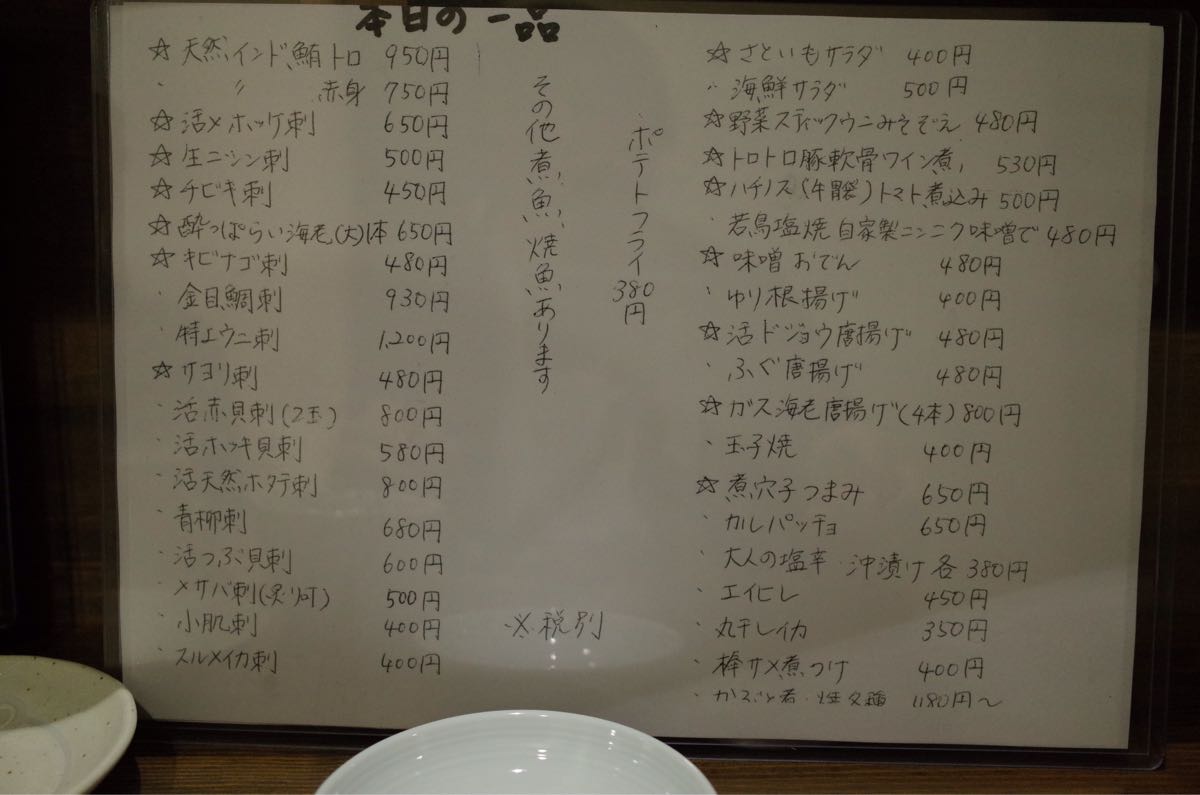 本日の一品
☆ 天然インド鮪トロ 950円
・ 〃 赤身 750円
☆ 活〆ホッケ刺 650円
☆ 生ニシン刺 500円
☆ チビキ刺 450円
☆ 酔っぱらい海老(大)1本 650円
☆ キビナゴ刺 480円
・ 金目鯛刺 930円
・ 特上ウニ刺 1,200円
☆ サヨリ刺 480円
・ 活赤貝刺(2玉) 800円
・ 活ホッキ貝刺 580円
・ 活天然ホタテ刺 800円
・ 青柳刺 680円
・ 活つぶ貝刺 600円
・ 〆サバ刺(炙り可) 500円
・ 小肌刺 400円
・ スルメイカ刺 400円
その他煮魚、焼魚あります
・ポテトフライ 380円
※税別
☆ さといもサラダ 400円
・ 海鮮サラダ 500円
☆ 野菜スティックウニみそぞえ 480円
☆ トロトロ豚軟骨ワイン煮 530円
☆ ハチノス(牛胃袋)トマト煮込み 500円
・ 若鳥塩焼 自家製ニンニク味噌で 480円
☆ 味噌おでん 480円
・ ゆり根揚げ 400円
☆ 活ドジョウ唐揚げ 480円
・ ふぐ唐揚げ 480円
☆ ガス海老唐揚げ(4本) 800円
・ 玉子焼 400円
☆ 煮穴子つまみ 650円
・ カルパッチョ 650円
大人の塩辛・沖漬け 各380円
・ エイヒレ 450円
・ 丸干しイカ 350円
・ 棒サメ煮つけ 400円
・ 煮・焼 各種 1180円〜